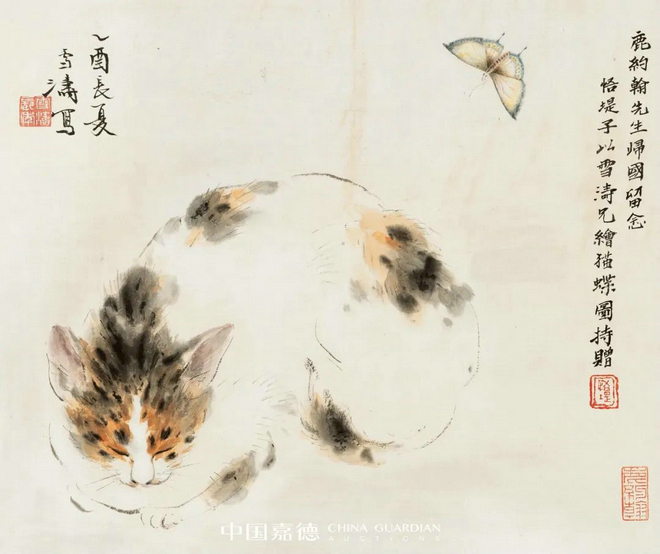 鹿約翰先生歸國留念
悟堤子以雪濤兄繪猫蝶圖持贈
乙酉長夏
雪濤寫
中国嘉德 CHINA GUARDIAN
AUCTIONS